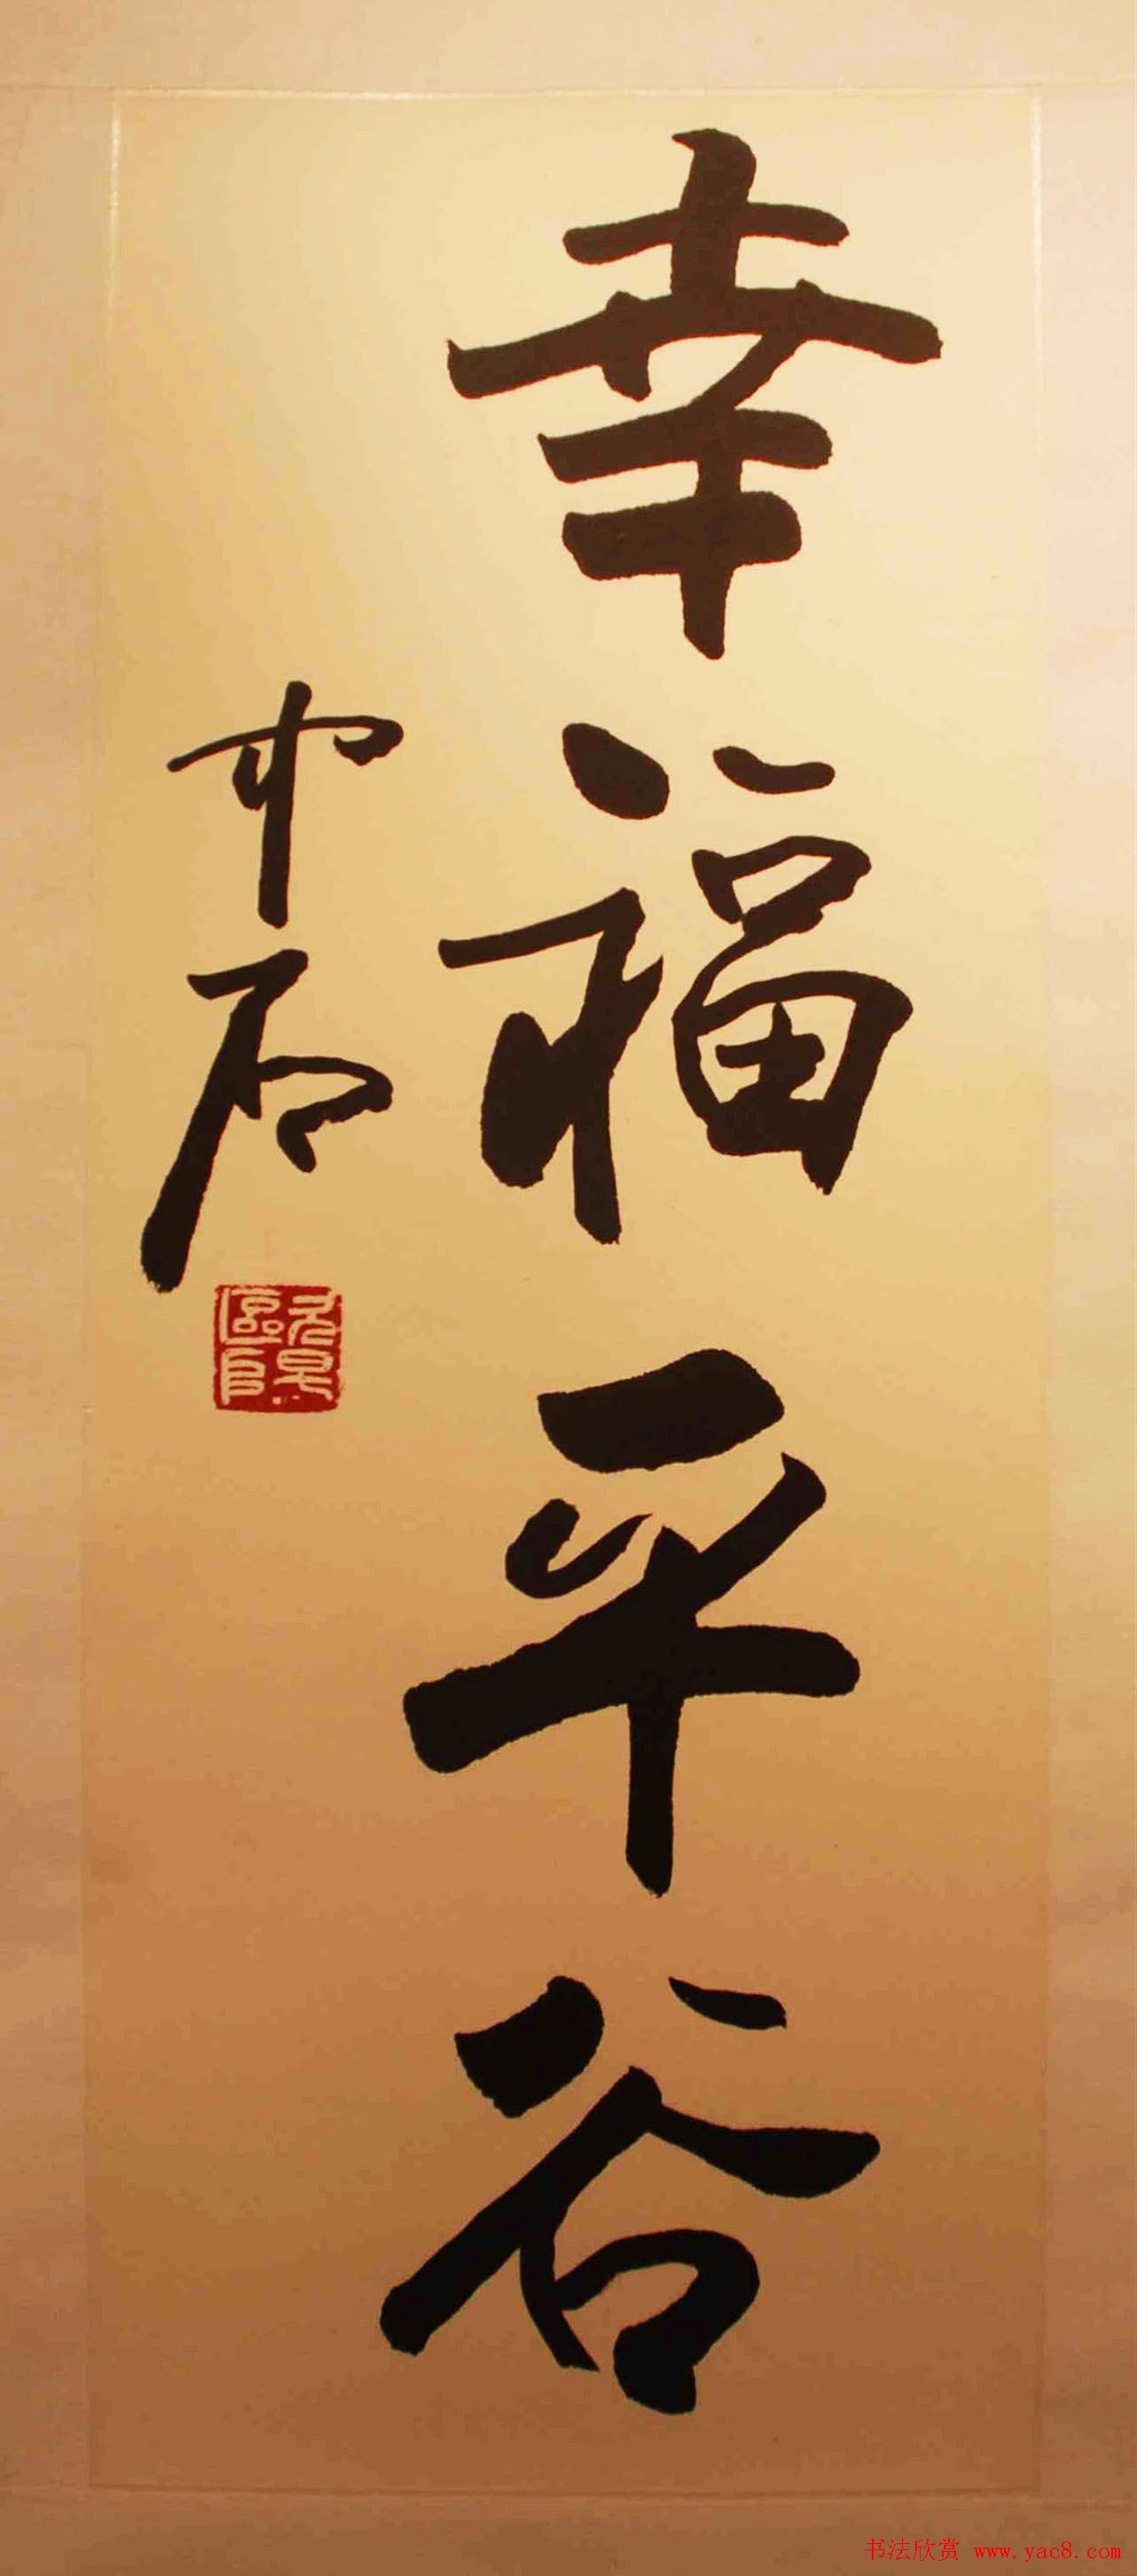 幸福平谷
中石
欧阳
书法欣赏 www.yac8.com